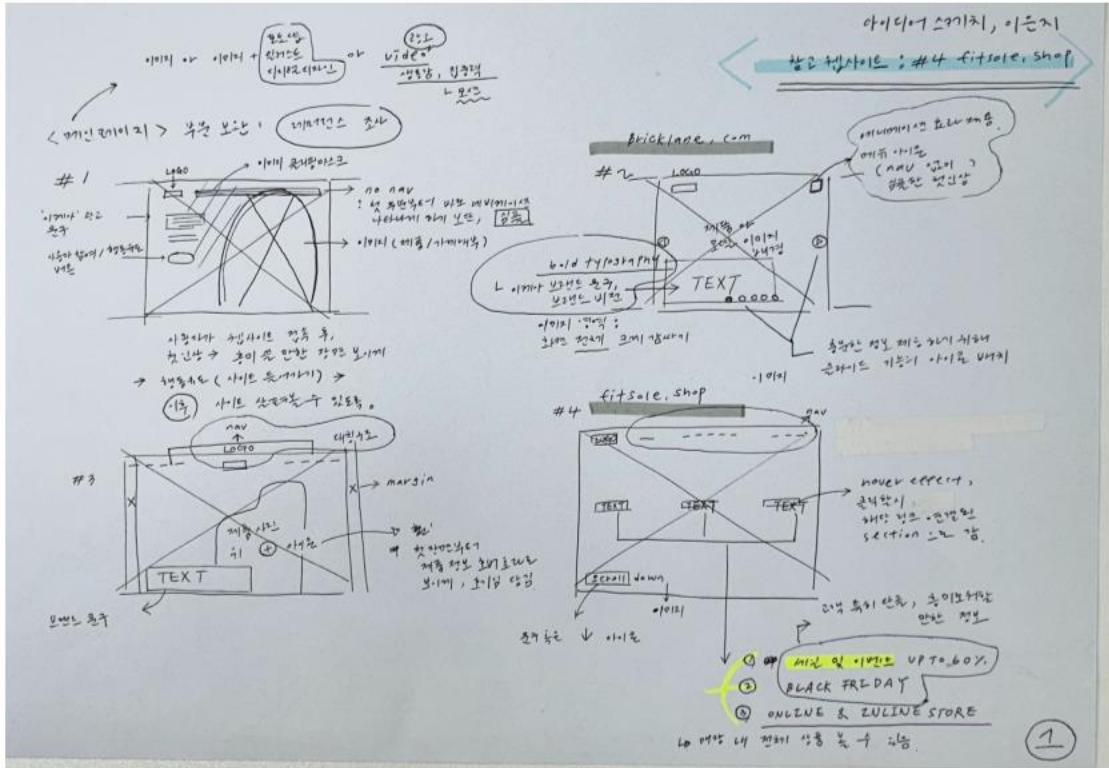 아이디어 스케치, 이은지
참고 웹사이트 : #4 fitsole.shop
이미지 or 이미지 +
or
video
생동감, 집중력
< 메인페이지 > 부분 보완 : 레퍼런스 조사
#1
LOGO
이미지 클리핑마스크
no nav
: 첫 화면부터 바로 네비게이션
나타나게 하기 보단, 심플
'이케아' 광고
문구
버튼
이미지 (제품/가게내부)
사용자가 웹사이트 접속 후,
첫인상 → 흥미 끌 만한 장면 보이게
→ 행동유도 ( 사이트 들어가기 ) →
이후 사이트 살펴볼 수 있도록.
bricklane.com
#2
LOGO
애니메이션 효과 적용.
메뉴 아이콘
(nav 없이)
깔끔한 첫인상
제품 or
이미지
배경
bold typography
TEXT
이케아 브랜드 문구,
브랜드 비전
이미지 영역 :
화면 전체 크게 감싸기
충분한 정보 제공 하기 위해
슬라이드 기능의 아이콘 배치
이미지
#3
nav
LOGO
대칭구조
margin
제품사진
위 + 아이콘
첫 장면부터
제품 정보
보이게,
TEXT
브랜드 문구
#4 fitsole.shop
LOGO
nav
TEXT
TEXT
TEXT
hover effect,
클릭할시,
해당 링크 연결된
section 으로 감.
scroll down
이미지
문구 혹은 ↓ 아이콘
고객 특히 만족, 흥미로워할
만한 정보
① 세일 및 이벤트 UP TO 60%
② BLACK FRIDAY
③ ONLINE & INLINE STORE
↳ 매장 내 전체 상품 볼 수 있음.
1